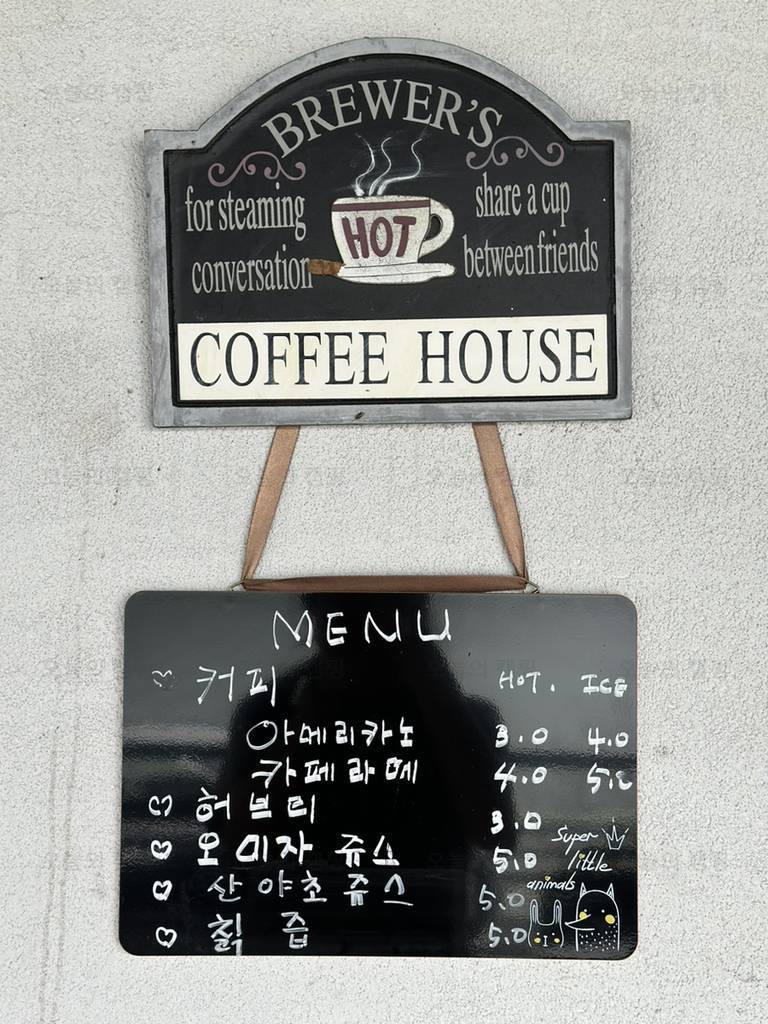 BREWER'S
for steaming
conversation
HOT
share a cup
between friends
COFFEE HOUSE
MENU
커피 HOT. ICE
아메리카노 3.0 4.0
카페라메 4.0 5.0
허브티 3.0
오미자 쥬스 5.0
산야초쥬스 5.0
칡 즙 5.0
Super
little
animals